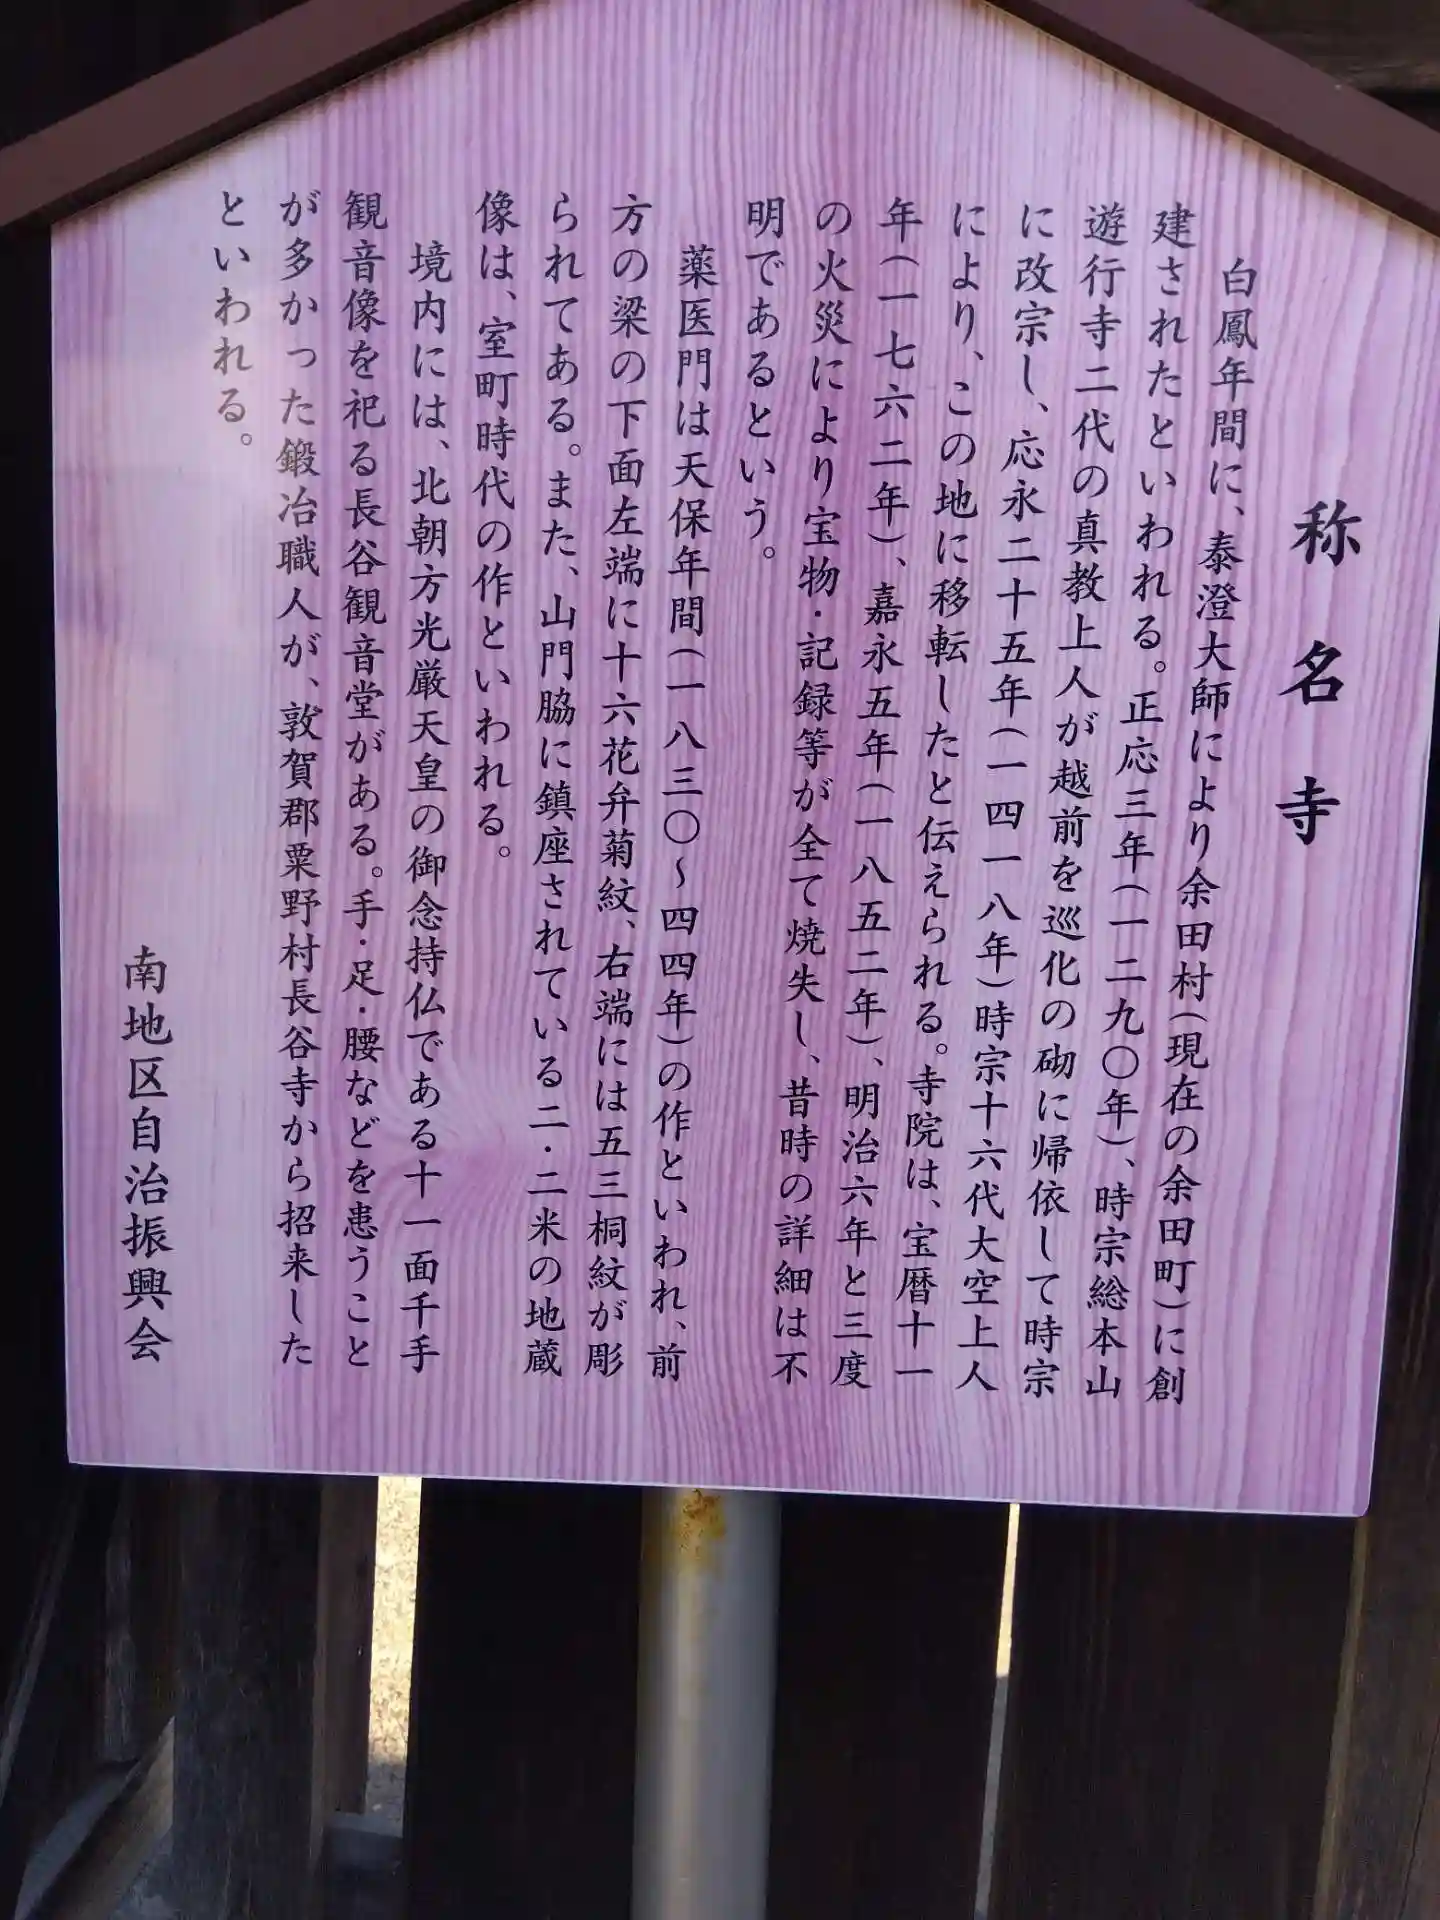 称名寺
白鳳年間に、泰澄大師により余田村(現在の余田町)に創
建されたといわれる。正応三年(一二九〇年)、時宗総本山
遊行寺二代の真教上人が越前を巡化の砌に帰依して時宗
に改宗し、応永二十五年(一四一八年)時宗十六代大空上人
により、この地に移転したと伝えられる。寺院は、宝暦十一
年(一七六二年)、嘉永五年(一八五二年)、明治六年と三度
の火災により宝物・記録等が全て焼失し、昔時の詳細は不
明であるという。
薬医門は天保年間(一八三〇～四四年)の作といわれ、前
方の梁の下面左端に十六花弁菊紋、右端には五三桐紋が彫
られてある。また、山門脇に鎮座されている二・二米の地蔵
像は、室町時代の作といわれる。
境内には、北朝方光厳天皇の御念持仏である十一面千手
観音像を祀る長谷観音堂がある。手・足・腰などを患うこと
が多かった鍛冶職人が、敦賀郡粟野村長谷寺から招来した
といわれる。
南地区自治振興会